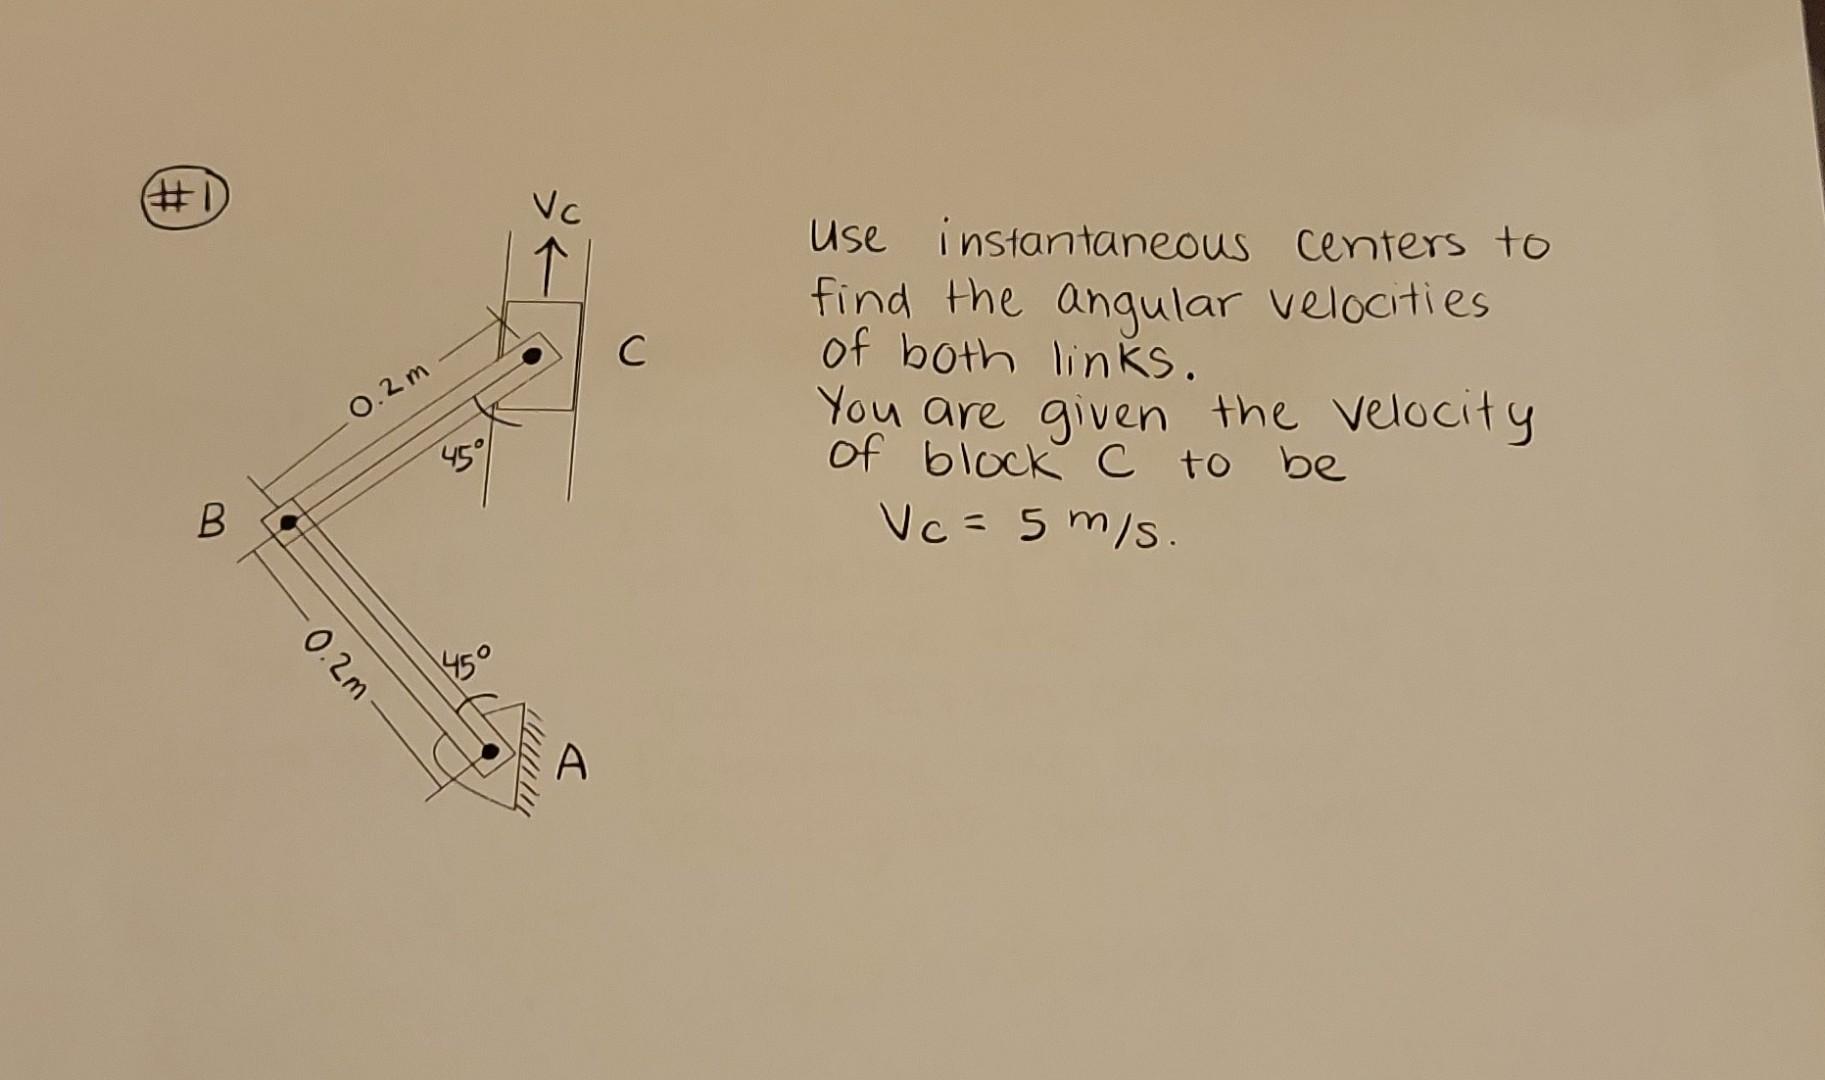 #1
Vc
C
0.2m
45°
B
0.2m
45°
A
Use instantaneous centers to
find the angular velocities
of both links.
You are given the velocity
of block C to be
Vc = 5 m/s.